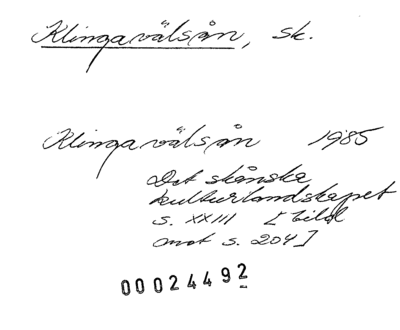 Klingavälsån, sk.
Klingavälsån 1985
Det skånska
kulturlandskapet
s. XXIII [bild
mot s. 204]
00024492